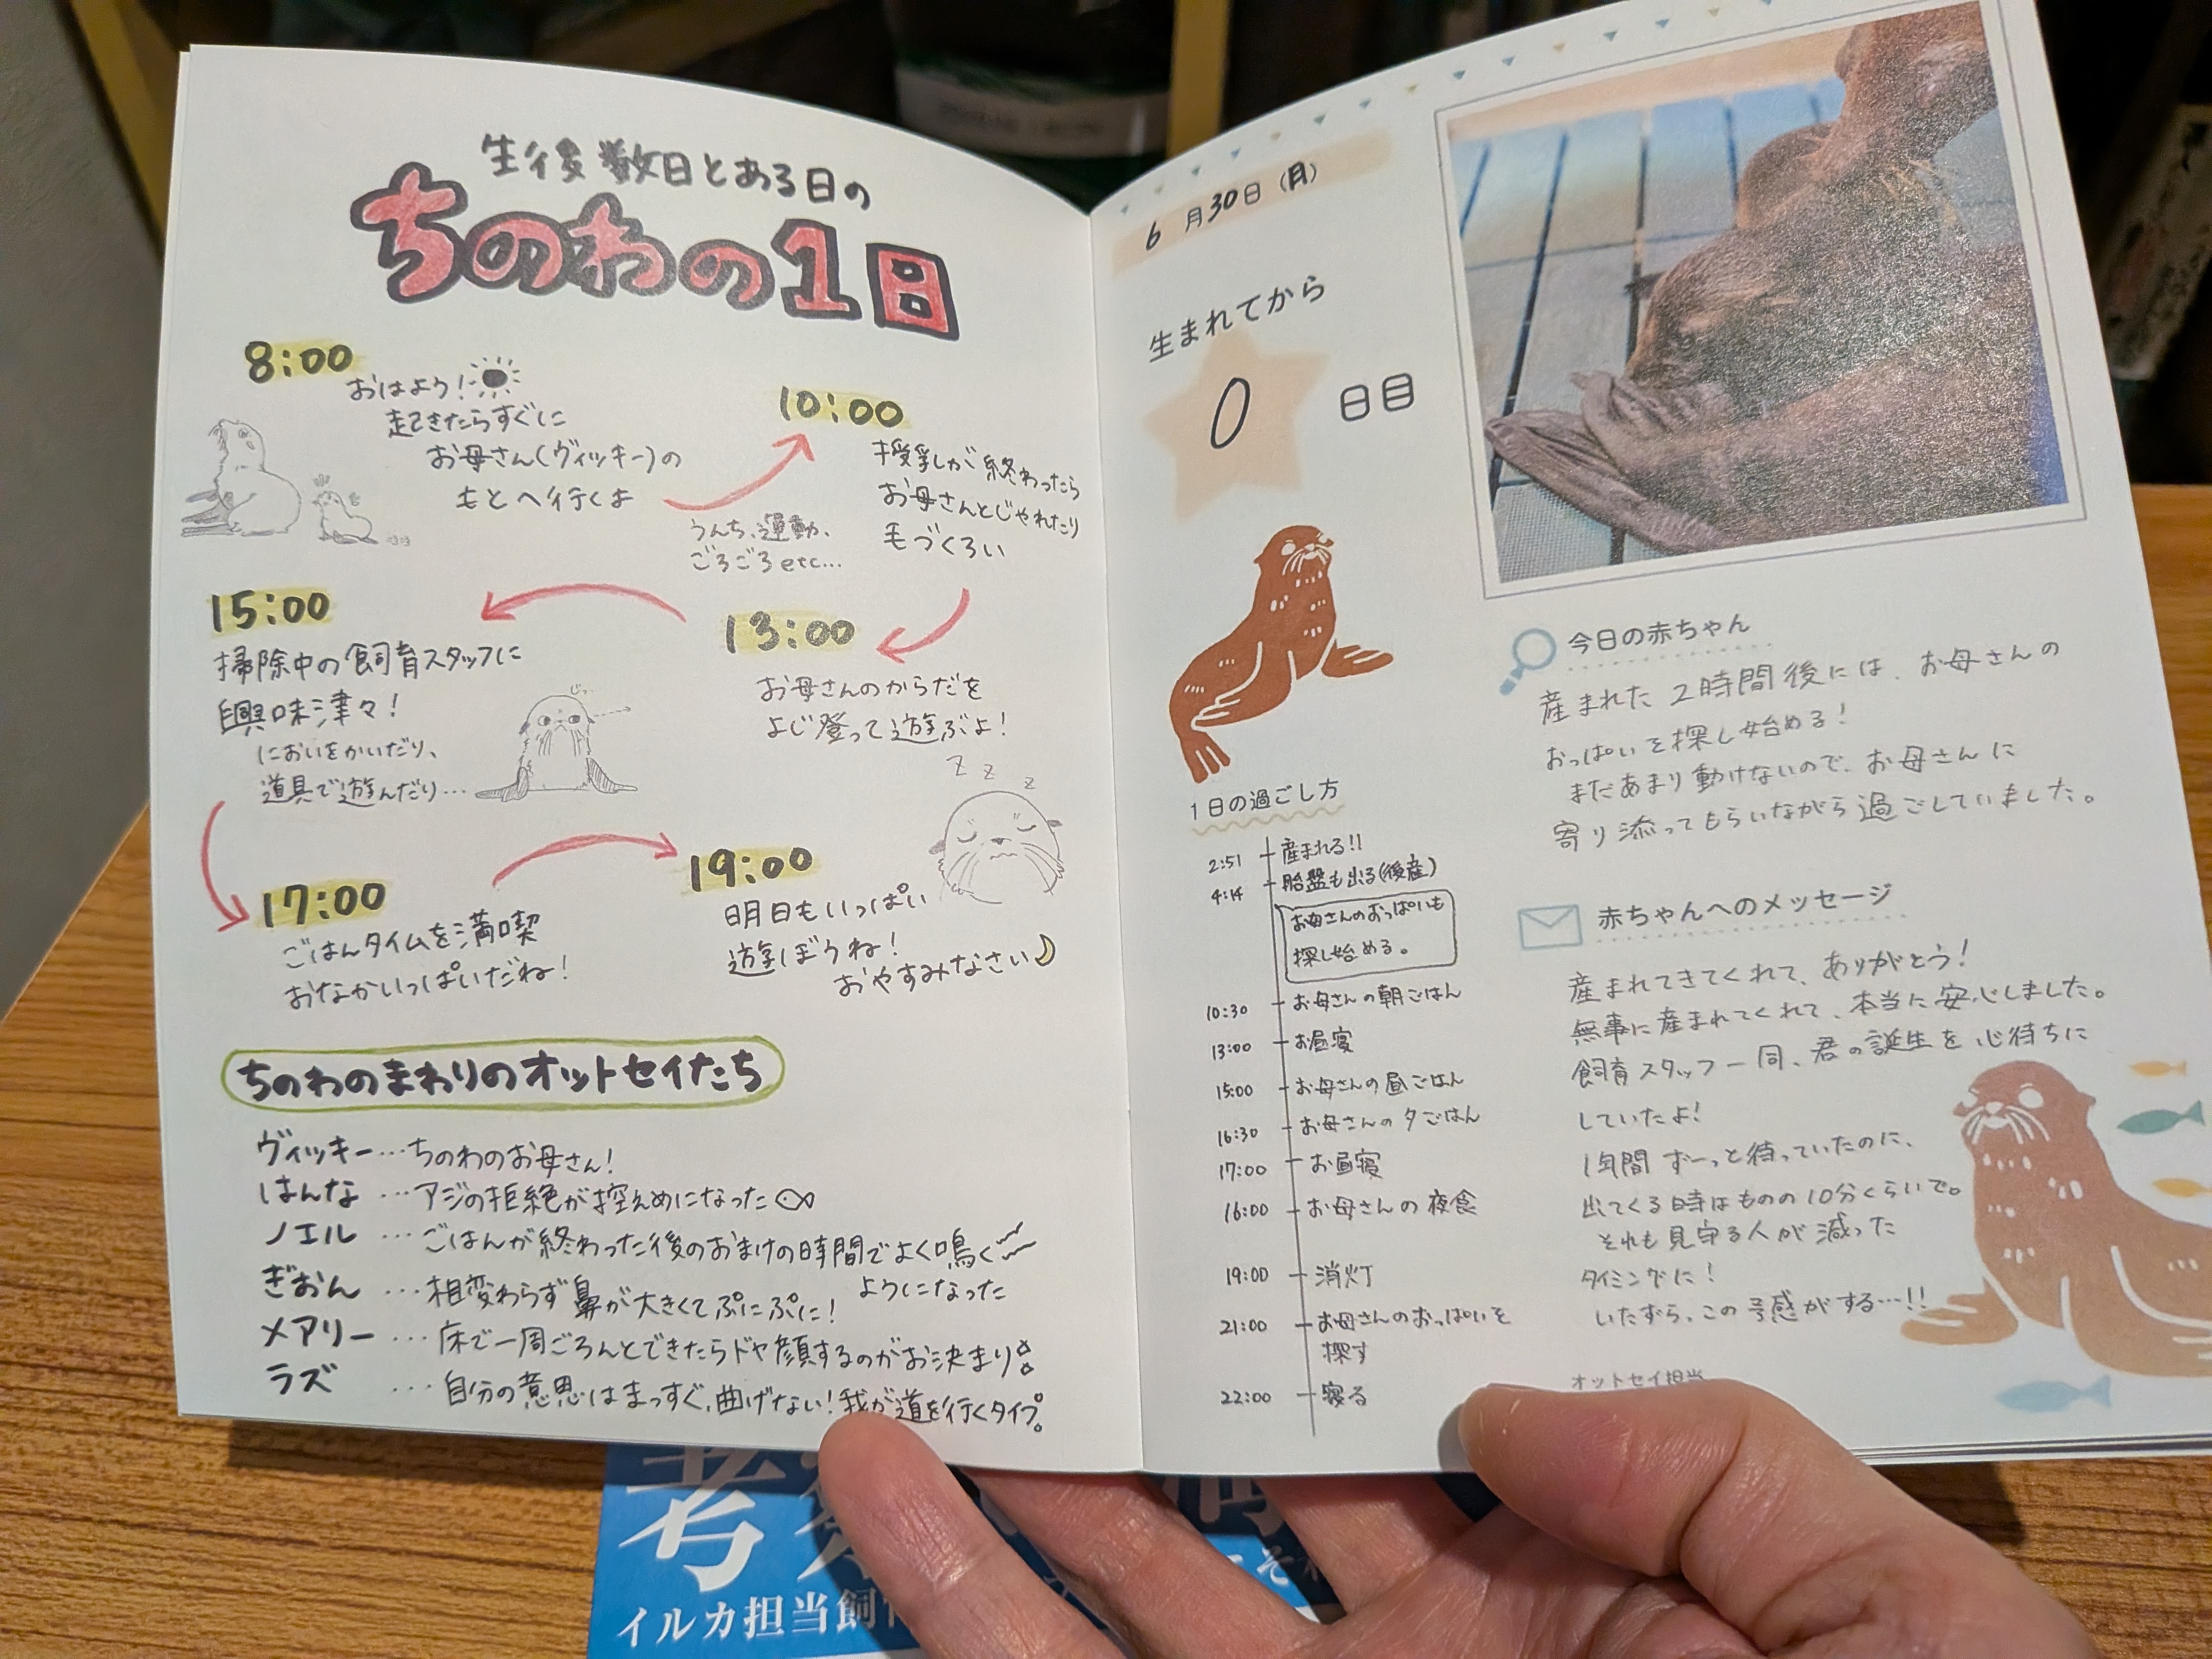 生後数日とある日の
ちのわの1日
8:00
おはよう！
起きたらすぐに
お母さん(ヴィッキー)の
もとへ行くよ
うんち、運動、
ごろごろetc…
10:00
授乳が終わったら
お母さんとじゃれたり
毛づくろい
13:00
お母さんのからだを
よじ登って遊ぶよ！
15:00
掃除中の飼育スタッフに
興味津々！
においをかいだり、
道具で遊んだり…
じっ
17:00
ごはんタイムを満喫
おなかいっぱいだね！
19:00
明日もいっぱい
遊ぼうね！
おやすみなさい
z z z
ちのわのまわりのオットセイたち
ヴィッキー…ちのわのお母さん！
はんな …アジの拒絶が控えめになった
ノエル …ごはんが終わった後のおまけの時間でよく鳴く
ようになった
ぎおん …相変わらず鼻が大きくてぷにぷに！
メアリー…床で一周ごろんとできたらドヤ顔するのがお決まり
ラズ …自分の意思はまっすぐ、曲げない！我が道を行くタイプ。
6月30日(月)
生まれてから
0日目
1日の過ごし方
2:51 産まれる!!
4:14 胎盤も出る(後産)
お母さんのおっぱいも
探し始める。
10:30 お母さんの朝ごはん
13:00 お昼寝
15:00 お母さんの昼ごはん
16:30 お母さんの夕ごはん
17:00 お昼寝
16:00 お母さんの夜食
19:00 消灯
21:00 お母さんのおっぱいを
探す
22:00 寝る
今日の赤ちゃん
産まれた2時間後には、お母さんの
おっぱいを探し始める！
まだあまり動けないので、お母さんに
寄り添ってもらいながら過ごしていました。
赤ちゃんへのメッセージ
産まれてきてくれて、ありがとう！
無事に産まれてくれて、本当に安心しました。
飼育スタッフ一同、君の誕生を心待ちに
していたよ！
1年間ずーっと待っていたのに、
出てくる時はものの10分くらいで。
それも見守る人が減った
タイミングに！
いたずらっこの予感がする…!!
オットセイ担当
考
イルカ担当飼